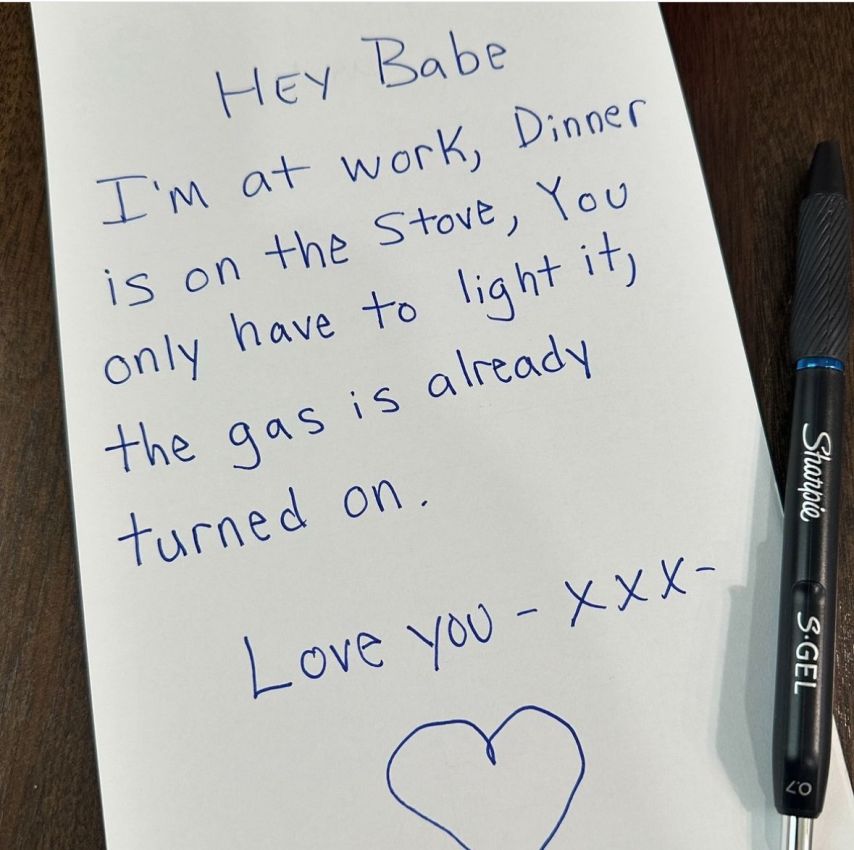 HEY Babe
I'm at work, Dinner
is on the Stove, You
only have to light it,
the gas is already
turned on.
Love you - xxx-
Sharpie
S·GEL
0.7